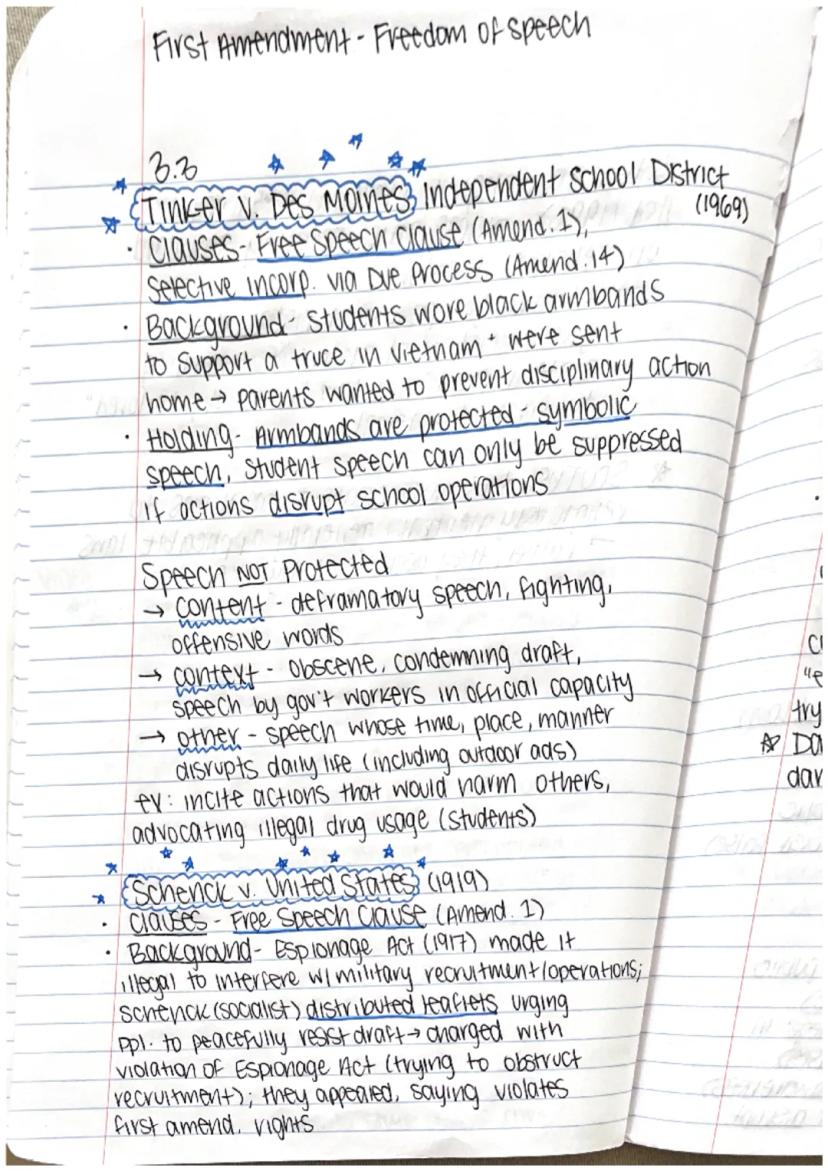 First Amendment - Freedom of speech
3.3
Tinker v. Des Moines Independent School District
(1969)
· Clauses - Free Speech Clause (Amend. 1),
Selective incorp. via Due Process (Amend. 14)
· Background - Students wore black armbands
to support a truce in Vietnam + were sent
home → parents wanted to prevent disciplinary action
· Holding - Armbands are protected - symbolic
speech, student speech can only be suppressed
if actions disrupt school operations
Speech NOT Protected
→ content - deframatory speech, fighting,
offensive words
→ context - obscene, condemning draft,
speech by gov't workers in official capacity
→ other - speech whose time, place, manner
disrupts daily life (including outdoor ads)
ex: incite actions that would harm others,
advocating illegal drug usage (students)
Schenck v. United States (1919)
· Clauses - Free Speech Clause (Amend. 1)
· Background - Espionage Act (1917) made it
illegal to interfere w/ military recruitment/operations;
schenck (socialist) distributed leaflets urging
ppl. to peacefully resist draft → charged with
violation of Espionage Act (trying to obstruct
recruitment); they appealed, saying violates
first amend. rights
try